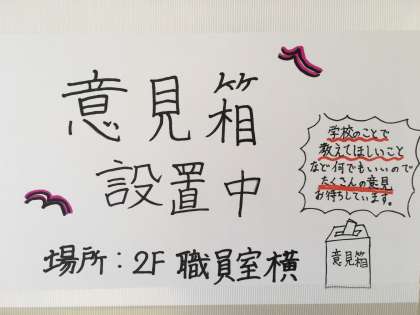 意見箱
設置中
学校のことで
教えてほしいこと
など何でもいいので
たくさんの意見
お待ちしています。
意見箱
場所：2F 職員室横